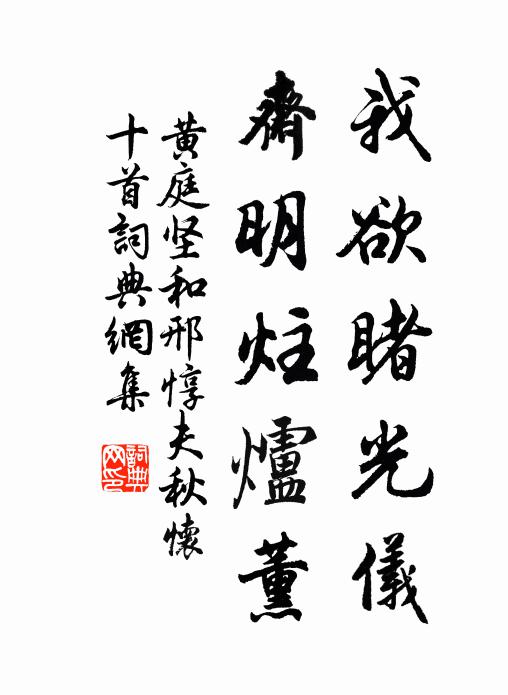 我欲睹光儀
齋明炷爐薰
黄庭坚和邢惇夫秋懷
十首詞典網集
詞典網印